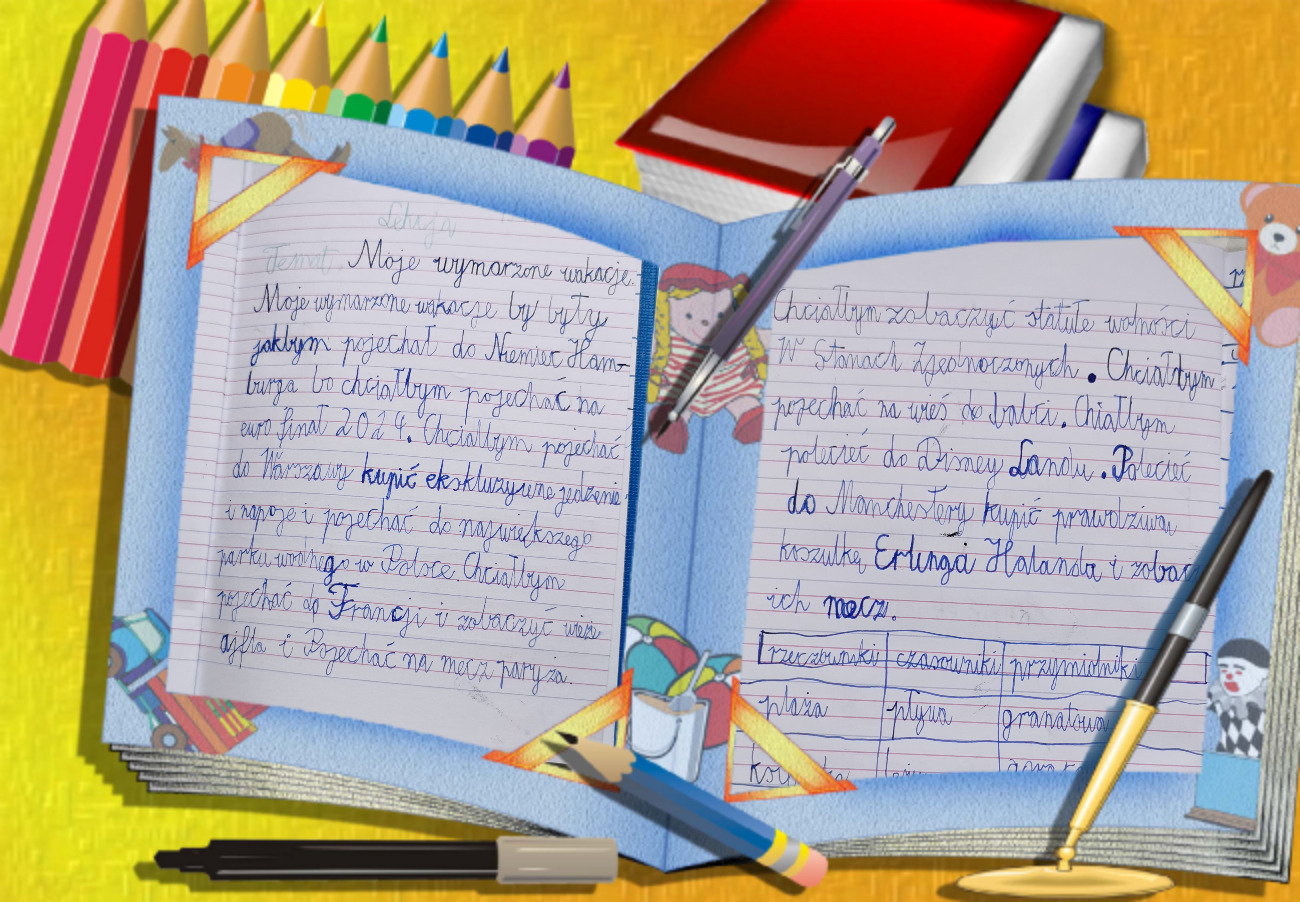 Lekcja
Temat. Moje wymarzone wakacje.
Moje wymarzone wakacje by były
jakbym pojechał do Niemiec Ham-
burga bo chciałbym pojechać na
euro finał 2024. Chciałbym pojechać
do Warszawy kupić ekskluzywne jedzenie
i napoje i pojechać do największego
parku wodnego w Polsce. Chciałbym
pojechać do Francji i zobaczyć wieże
ajfla i Pojechać na mecz paryża.
Chciałbym zobaczyć statułe wolności
W Stanach Zjednoczonych. Chciałbym
pojechać na wieś do babci. Chiałbym
polecieć do Disney Landu. Polecieć
do Manchestery kupić prawdziwa
koszulkę Erlinga Halanda i zobac
ich mecz.
rzeczowniki czasowniki przymiotniki
plaża pływa granatowa